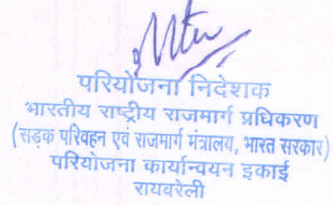 परियोजना निदेशक
भारतीय राष्ट्रीय राजमार्ग प्रधिकरण
(सड़क परिवहन एवं राजमार्ग मंत्रालय, भारत सरकार)
परियोजना कार्यान्वयन इकाई
रायबरेली